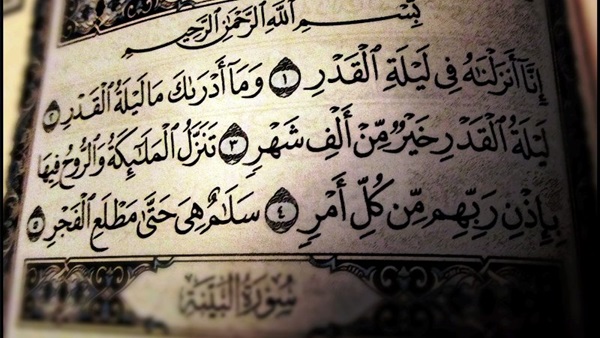 بِسْمِ ٱللَّهِ ٱلرَّحْمَٰنِ ٱلرَّحِيمِ
إِنَّآ أَنزَلْنَٰهُ فِى لَيْلَةِ ٱلْقَدْرِ ١ وَمَآ أَدْرَىٰكَ مَا لَيْلَةُ ٱلْقَدْرِ ٢
لَيْلَةُ ٱلْقَدْرِ خَيْرٌ مِّنْ أَلْفِ شَهْرٍ ٣ تَنَزَّلُ ٱلْمَلَٰٓئِكَةُ وَٱلرُّوحُ فِيهَا
بِإِذْنِ رَبِّهِم مِّن كُلِّ أَمْرٍ ٤ سَلَٰمٌ هِىَ حَتَّىٰ مَطْلَعِ ٱلْفَجْرِ ٥
سُورَةُ الْبَيِّنَةِ